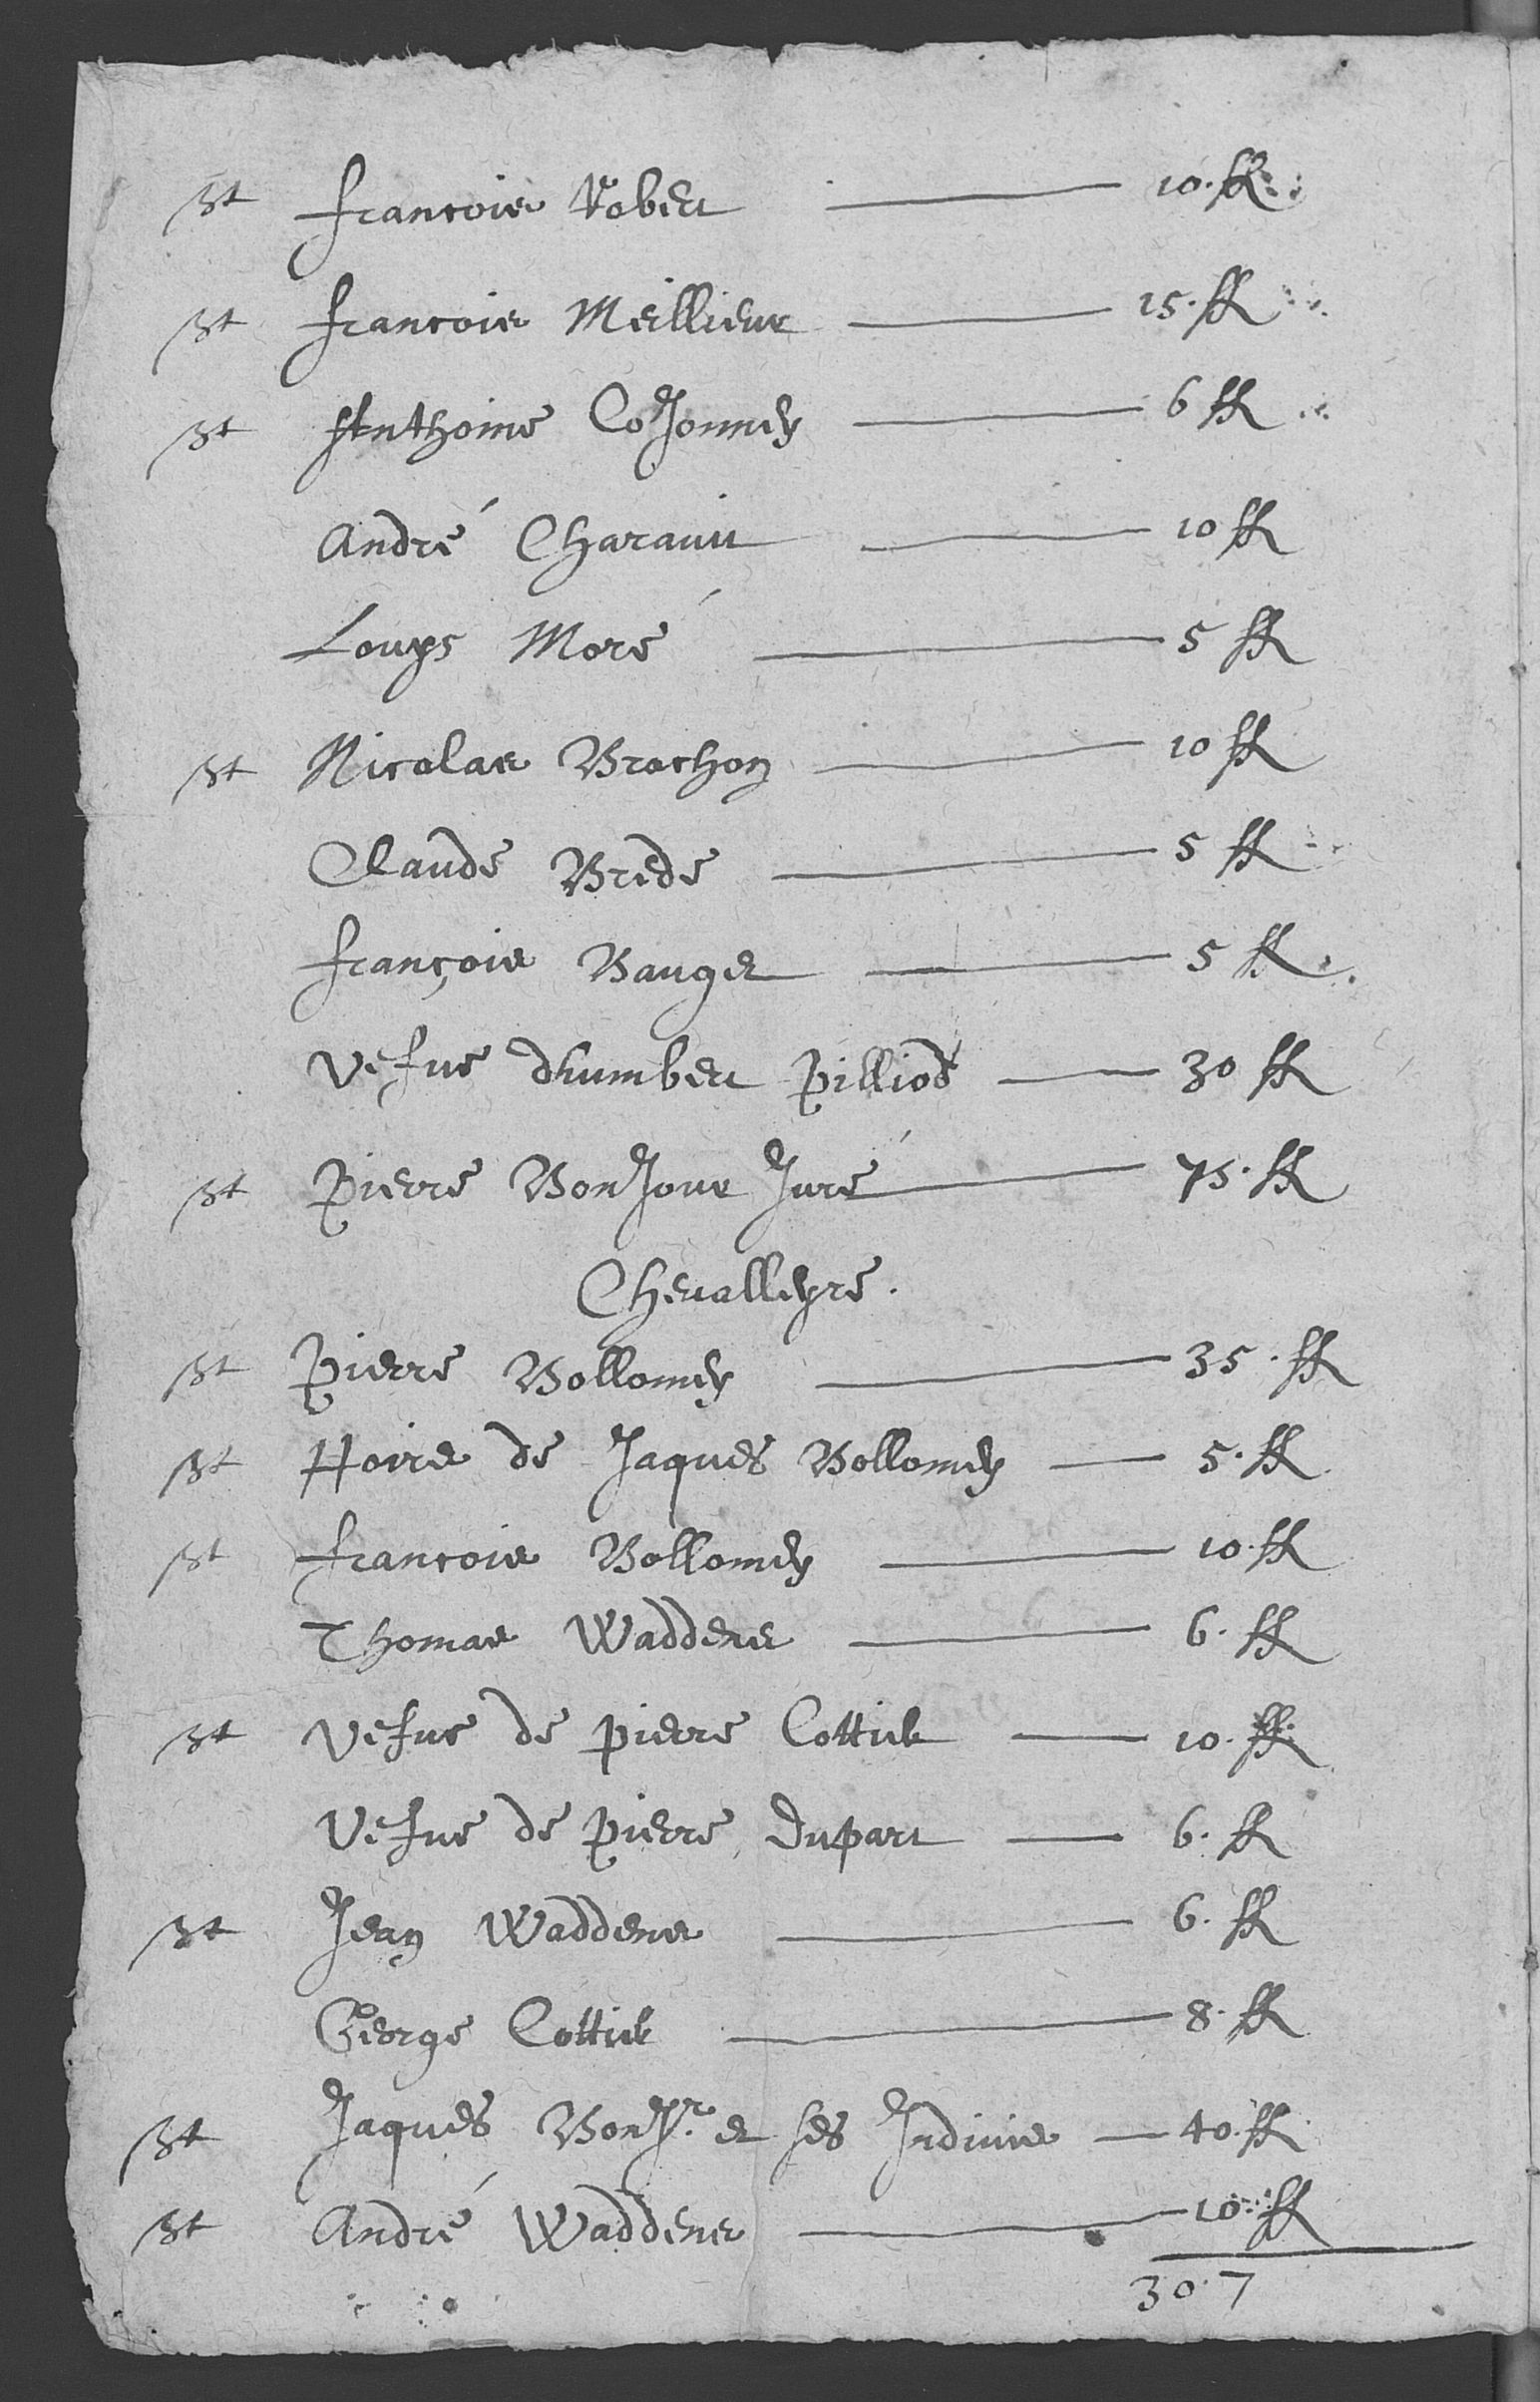 st françois Robert — 10. ff
st françois Meillieur — 15. ff
st Anthoine Cosonney — 6 ff
André Charauit — 10 ff
Louys Moré — 5 ff
st Nicolas Brochon — 10 ff
Claude Brede — 5 ff
françois Bauger — 5 ff
Vefue dhumbert Pilliod — 30 ff
st Pierre BonJour Juré — 75. ff
Cheualleyre.
st Pierre Vollomey — 35. ff
st Hoirs de Jaques Vollomey — 5. ff
st françois Vollomey — 10. ff
Thomas Waddens — 6. ff
st Vefue de pierre Cottiet — 10. ff
Vefue de pierre Dupart — 6. ff
st Jean Waddens — 6. ff
George Cottiet — 8. ff
st Jaques BonJr. et ses Indiuis — 40. ff
st André Waddens — 10. ff
307